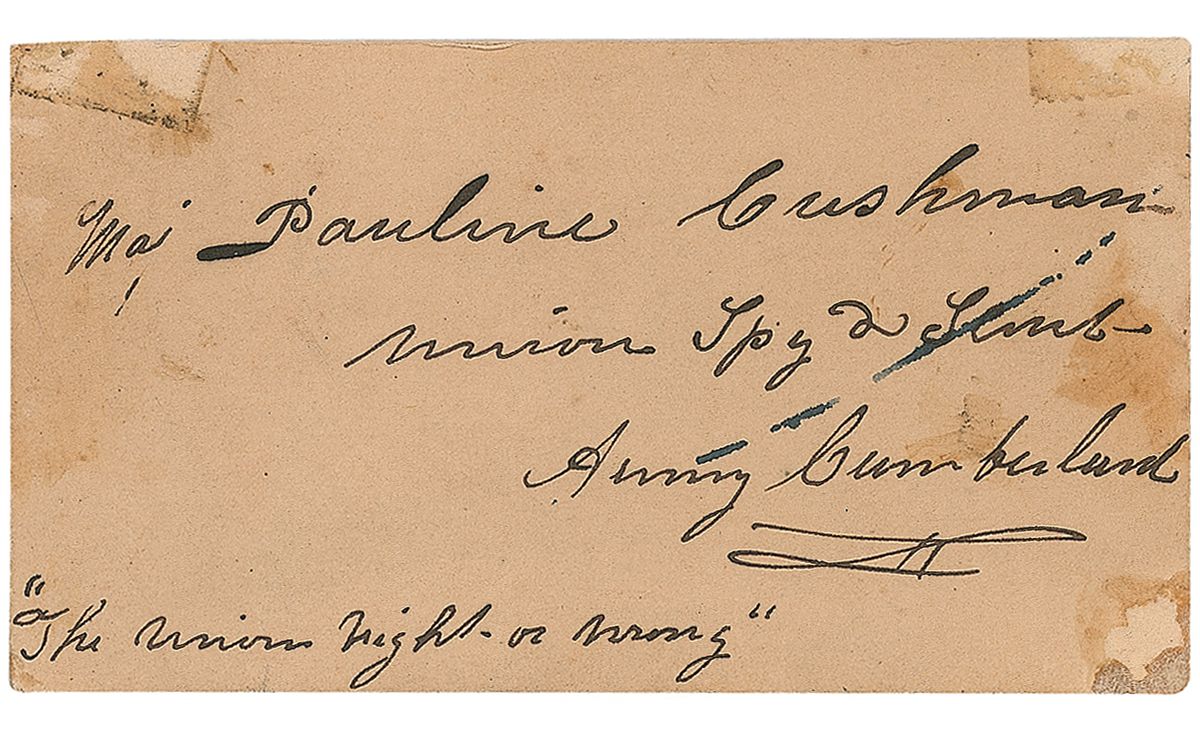 Maj Pauline Cushman
Union Spy & Scout
Army Cumberland
"The Union right or wrong"